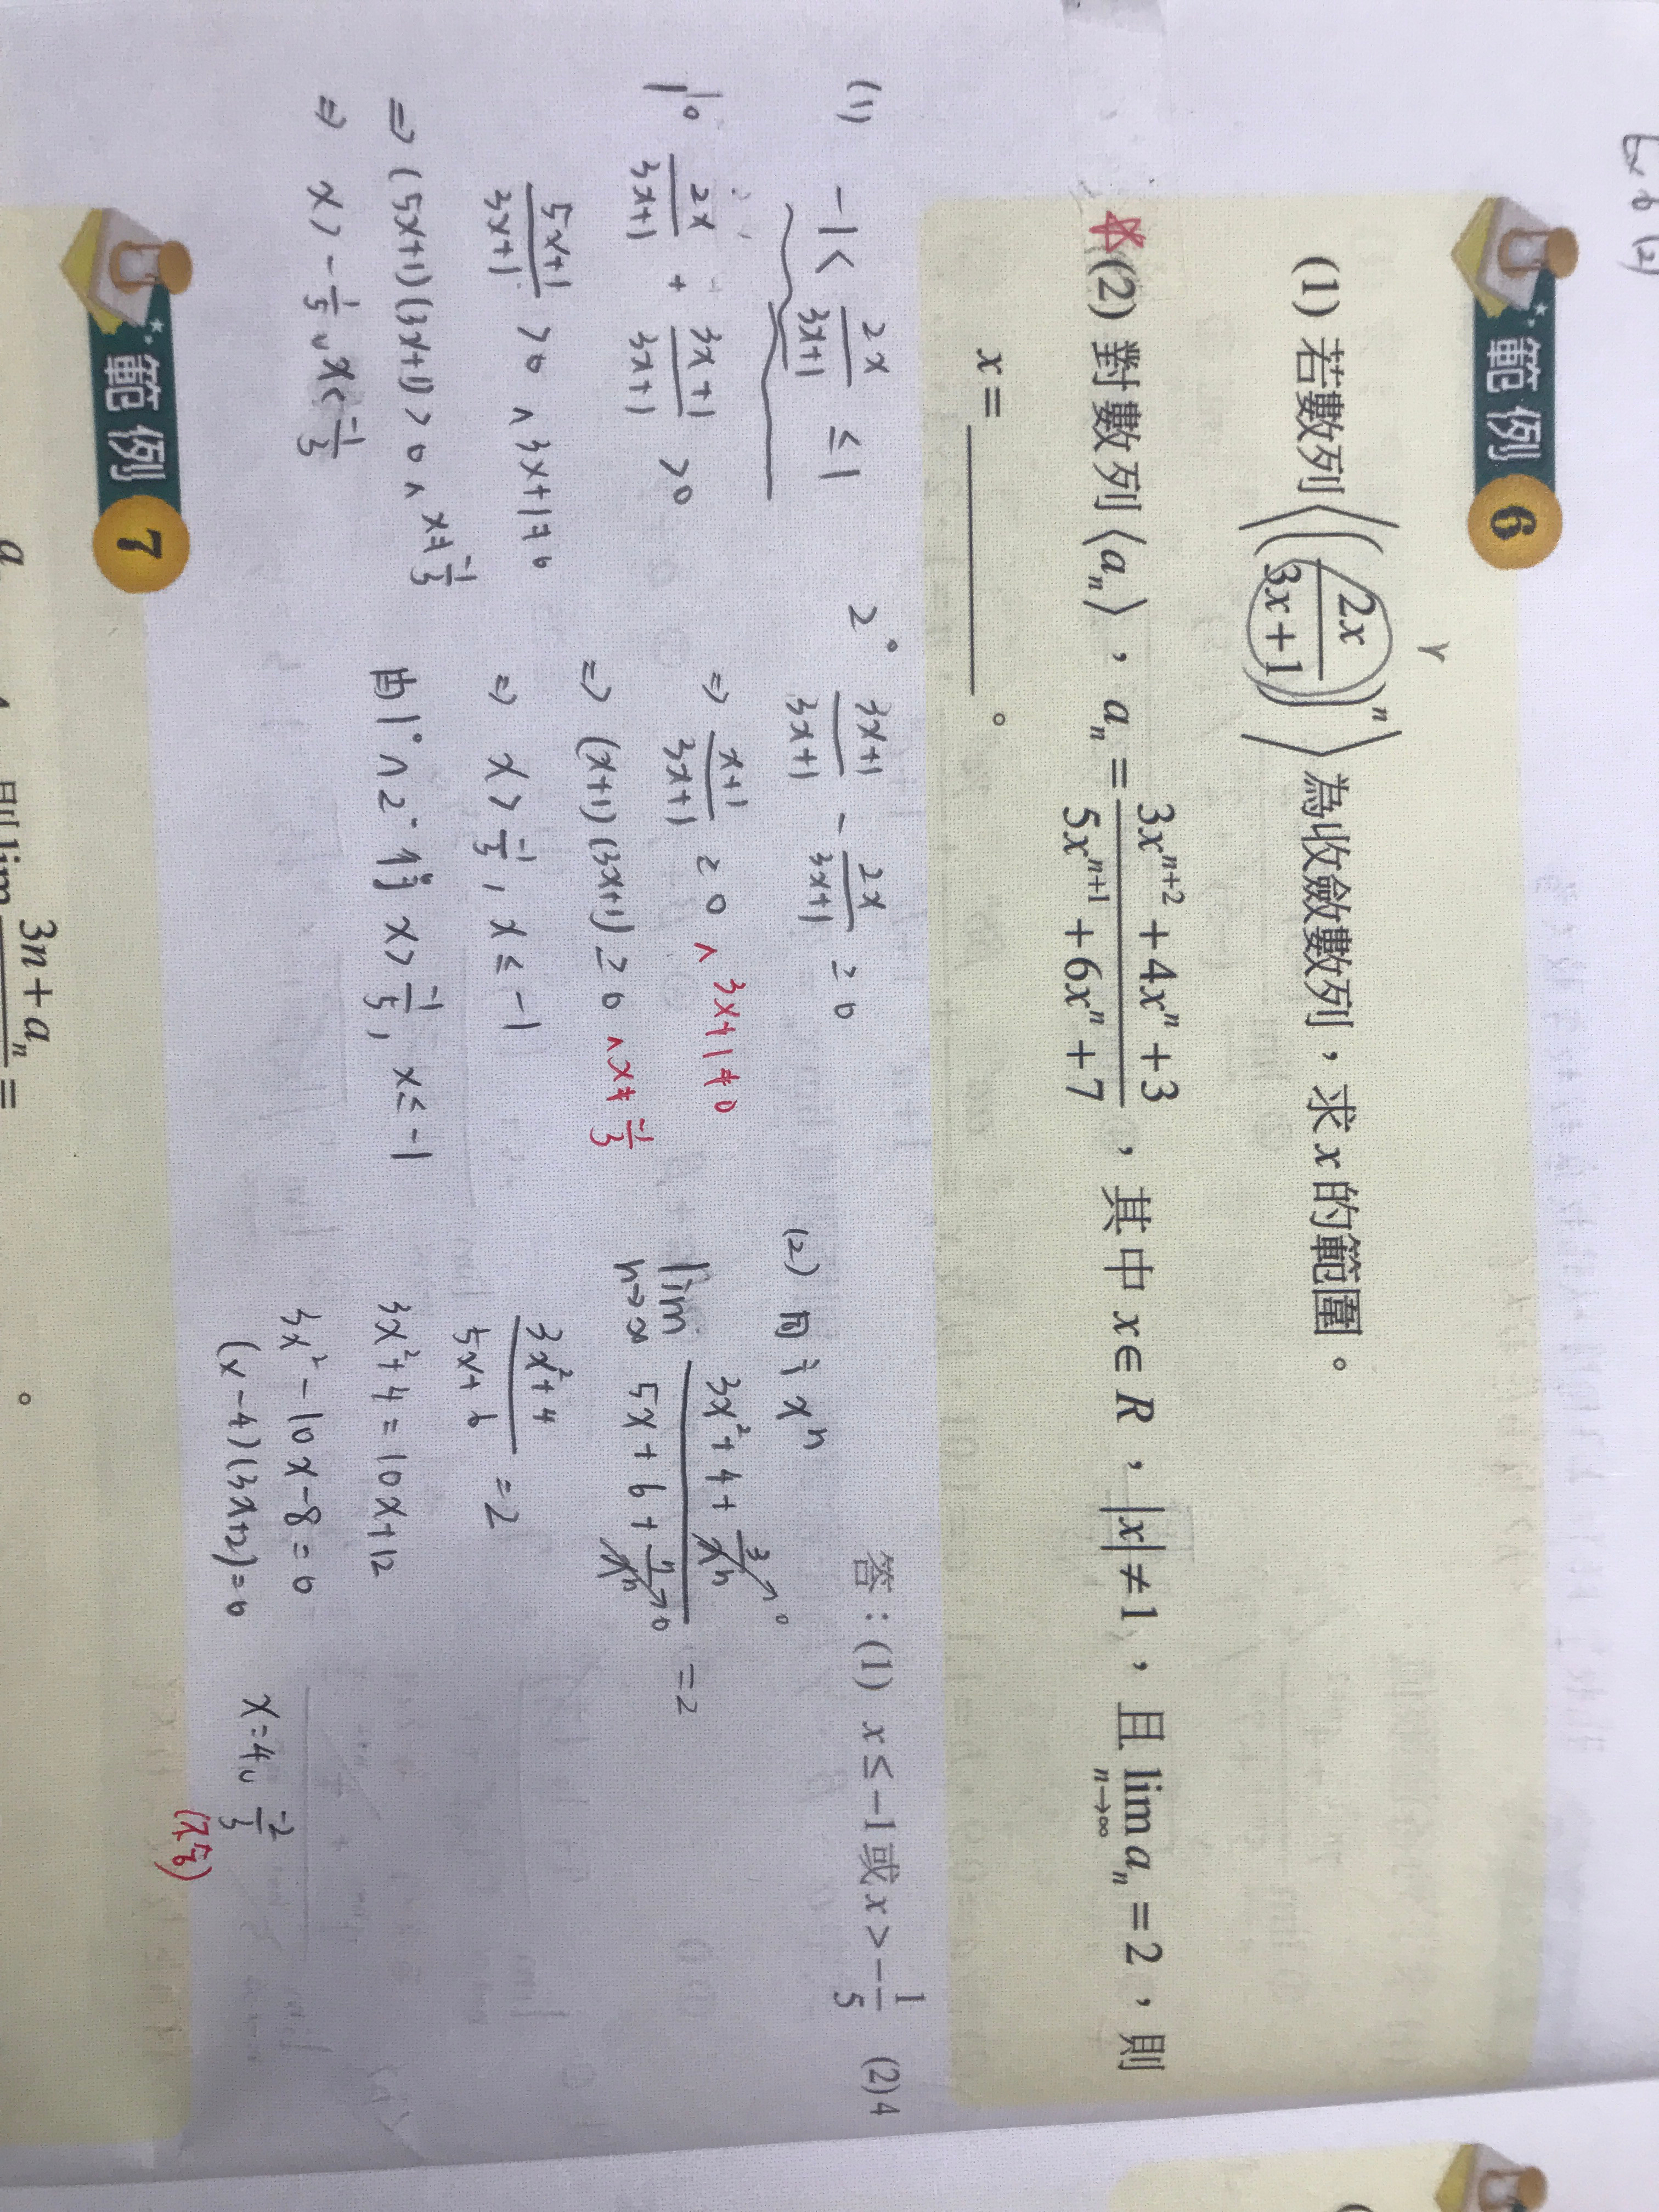 Ex 6 (2)
範例 6
(1) 若數列⟨(2x/(3x+1))ⁿ⟩為收斂數列，求 x 的範圍。
r
(2) 對數列⟨aₙ⟩，aₙ = (3xⁿ⁺² + 4xⁿ + 3)/(5xⁿ⁺¹ + 6xⁿ + 7)，其中 x∈R，|x| ≠ 1，且 lim_{n→∞} aₙ = 2，則
x = ________。
答：(1) x ≤ −1 或 x > −1/5 (2)4
(1) −1 < 2x/(3x+1) ≤ 1
1° 2x/(3x+1) + (3x+1)/(3x+1) > 0
(5x+1)/(3x+1) > 0 ∧ 3x+1 ≠ 0
⇒ (5x+1)(3x+1) > 0 ∧ x ≠ −1/3
⇒ x > −1/5 ∪ x < −1/3
2° (3x+1)/(3x+1) − 2x/(3x+1) ≥ 0
⇒ (x+1)/(3x+1) ≥ 0 ∧ 3x+1 ≠ 0
⇒ (x+1)(3x+1) ≥ 0 ∧ x ≠ −1/3
⇒ x > −1/3, x ≤ −1
由 1° ∧ 2° 得 x > −1/5, x ≤ −1
(2) 同÷xⁿ
lim_{n→∞} (3x² + 4 + 3/xⁿ→0)/(5x + 6 + 7/xⁿ→0) = 2
(3x² + 4)/(5x + 6) = 2
3x² + 4 = 10x + 12
3x² − 10x − 8 = 0
(x−4)(3x+2) = 0
x = 4 ∪ −2/3
(不合)
範例 7
3n + aₙ
則 lim =